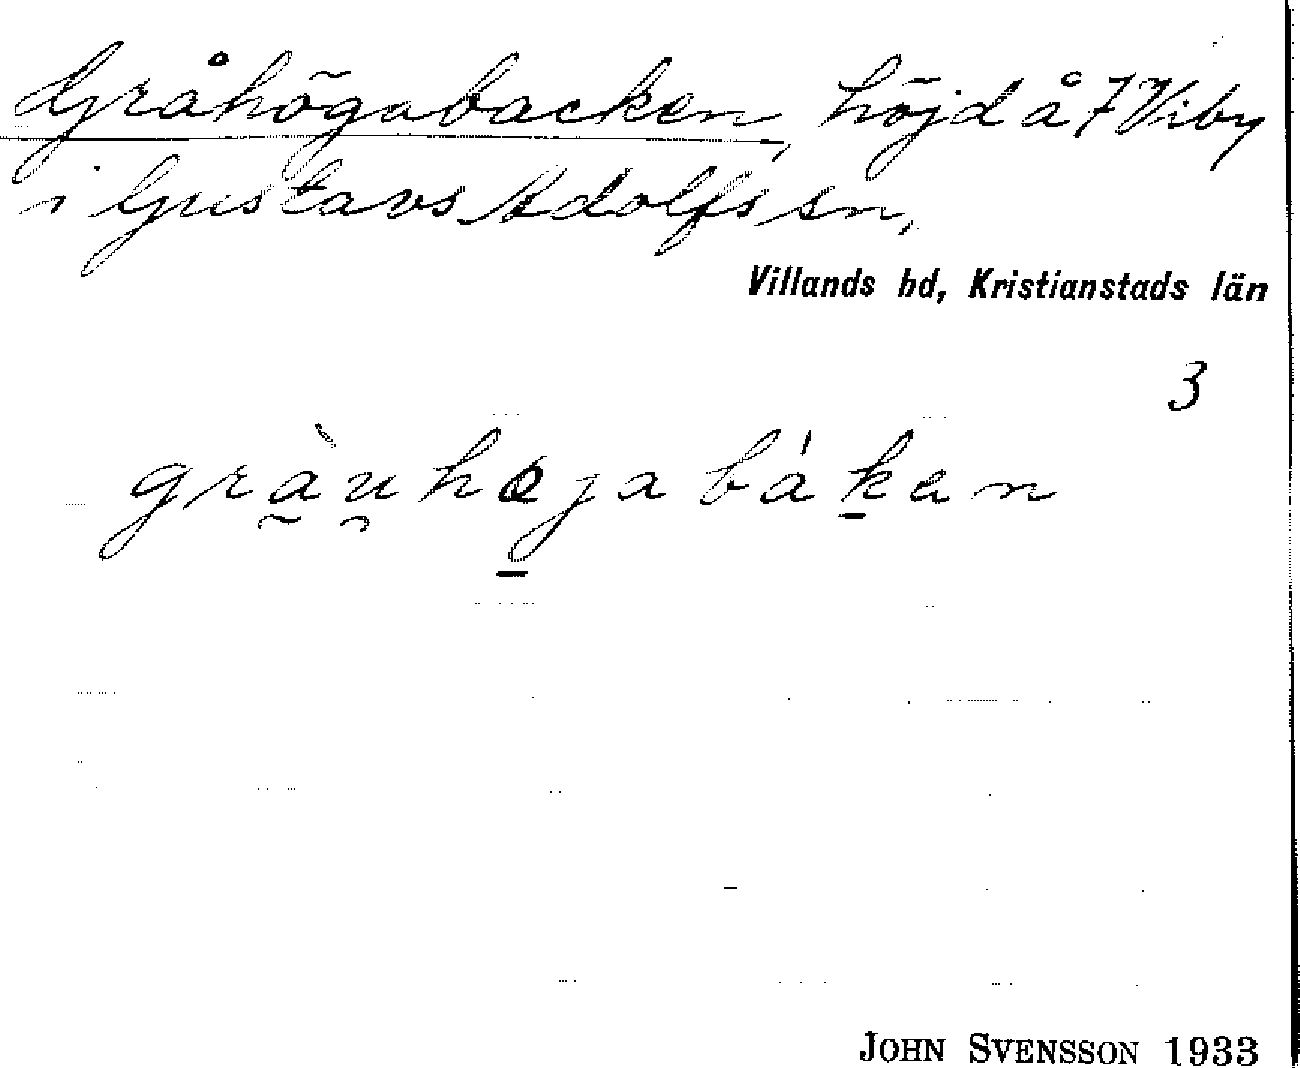 Gråhögabacken, höjd å 7 Viby
i Gustavs Adolfs sn,
Villands hd, Kristianstads län
3
gràu̯højabákan
JOHN SVENSSON 1933